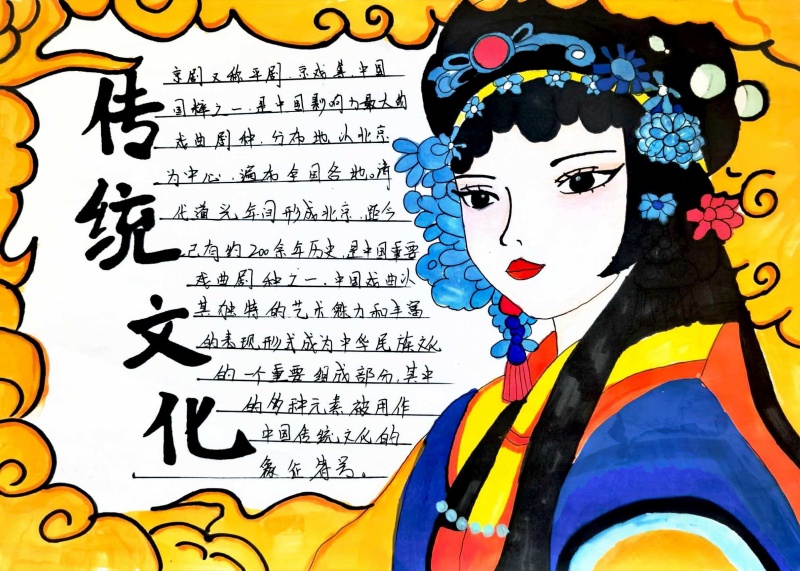 传统文化
京剧又称平剧、京戏等,中国
国粹之一,是中国影响力最大的
戏曲剧种,分布地以北京
为中心,遍布全国各地。清
代道光年间形成北京,距今
已有约200余年历史,是中国重要
戏曲剧种之一,中国戏曲以
其独特的艺术魅力和丰富
的表现形式成为中华民族文化
的一个重要组成部分,其中
的多种元素被用作
中国传统文化的
象征符号。